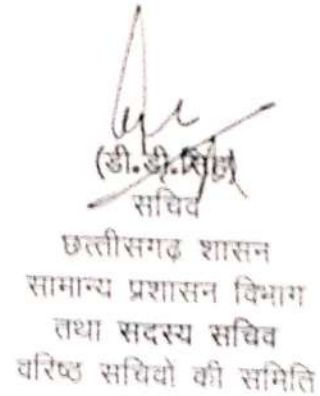 (डी.डी.सिंह)
सचिव
छत्तीसगढ़ शासन
सामान्य प्रशासन विभाग
तथा सदस्य सचिव
वरिष्ठ सचिवो की समिति